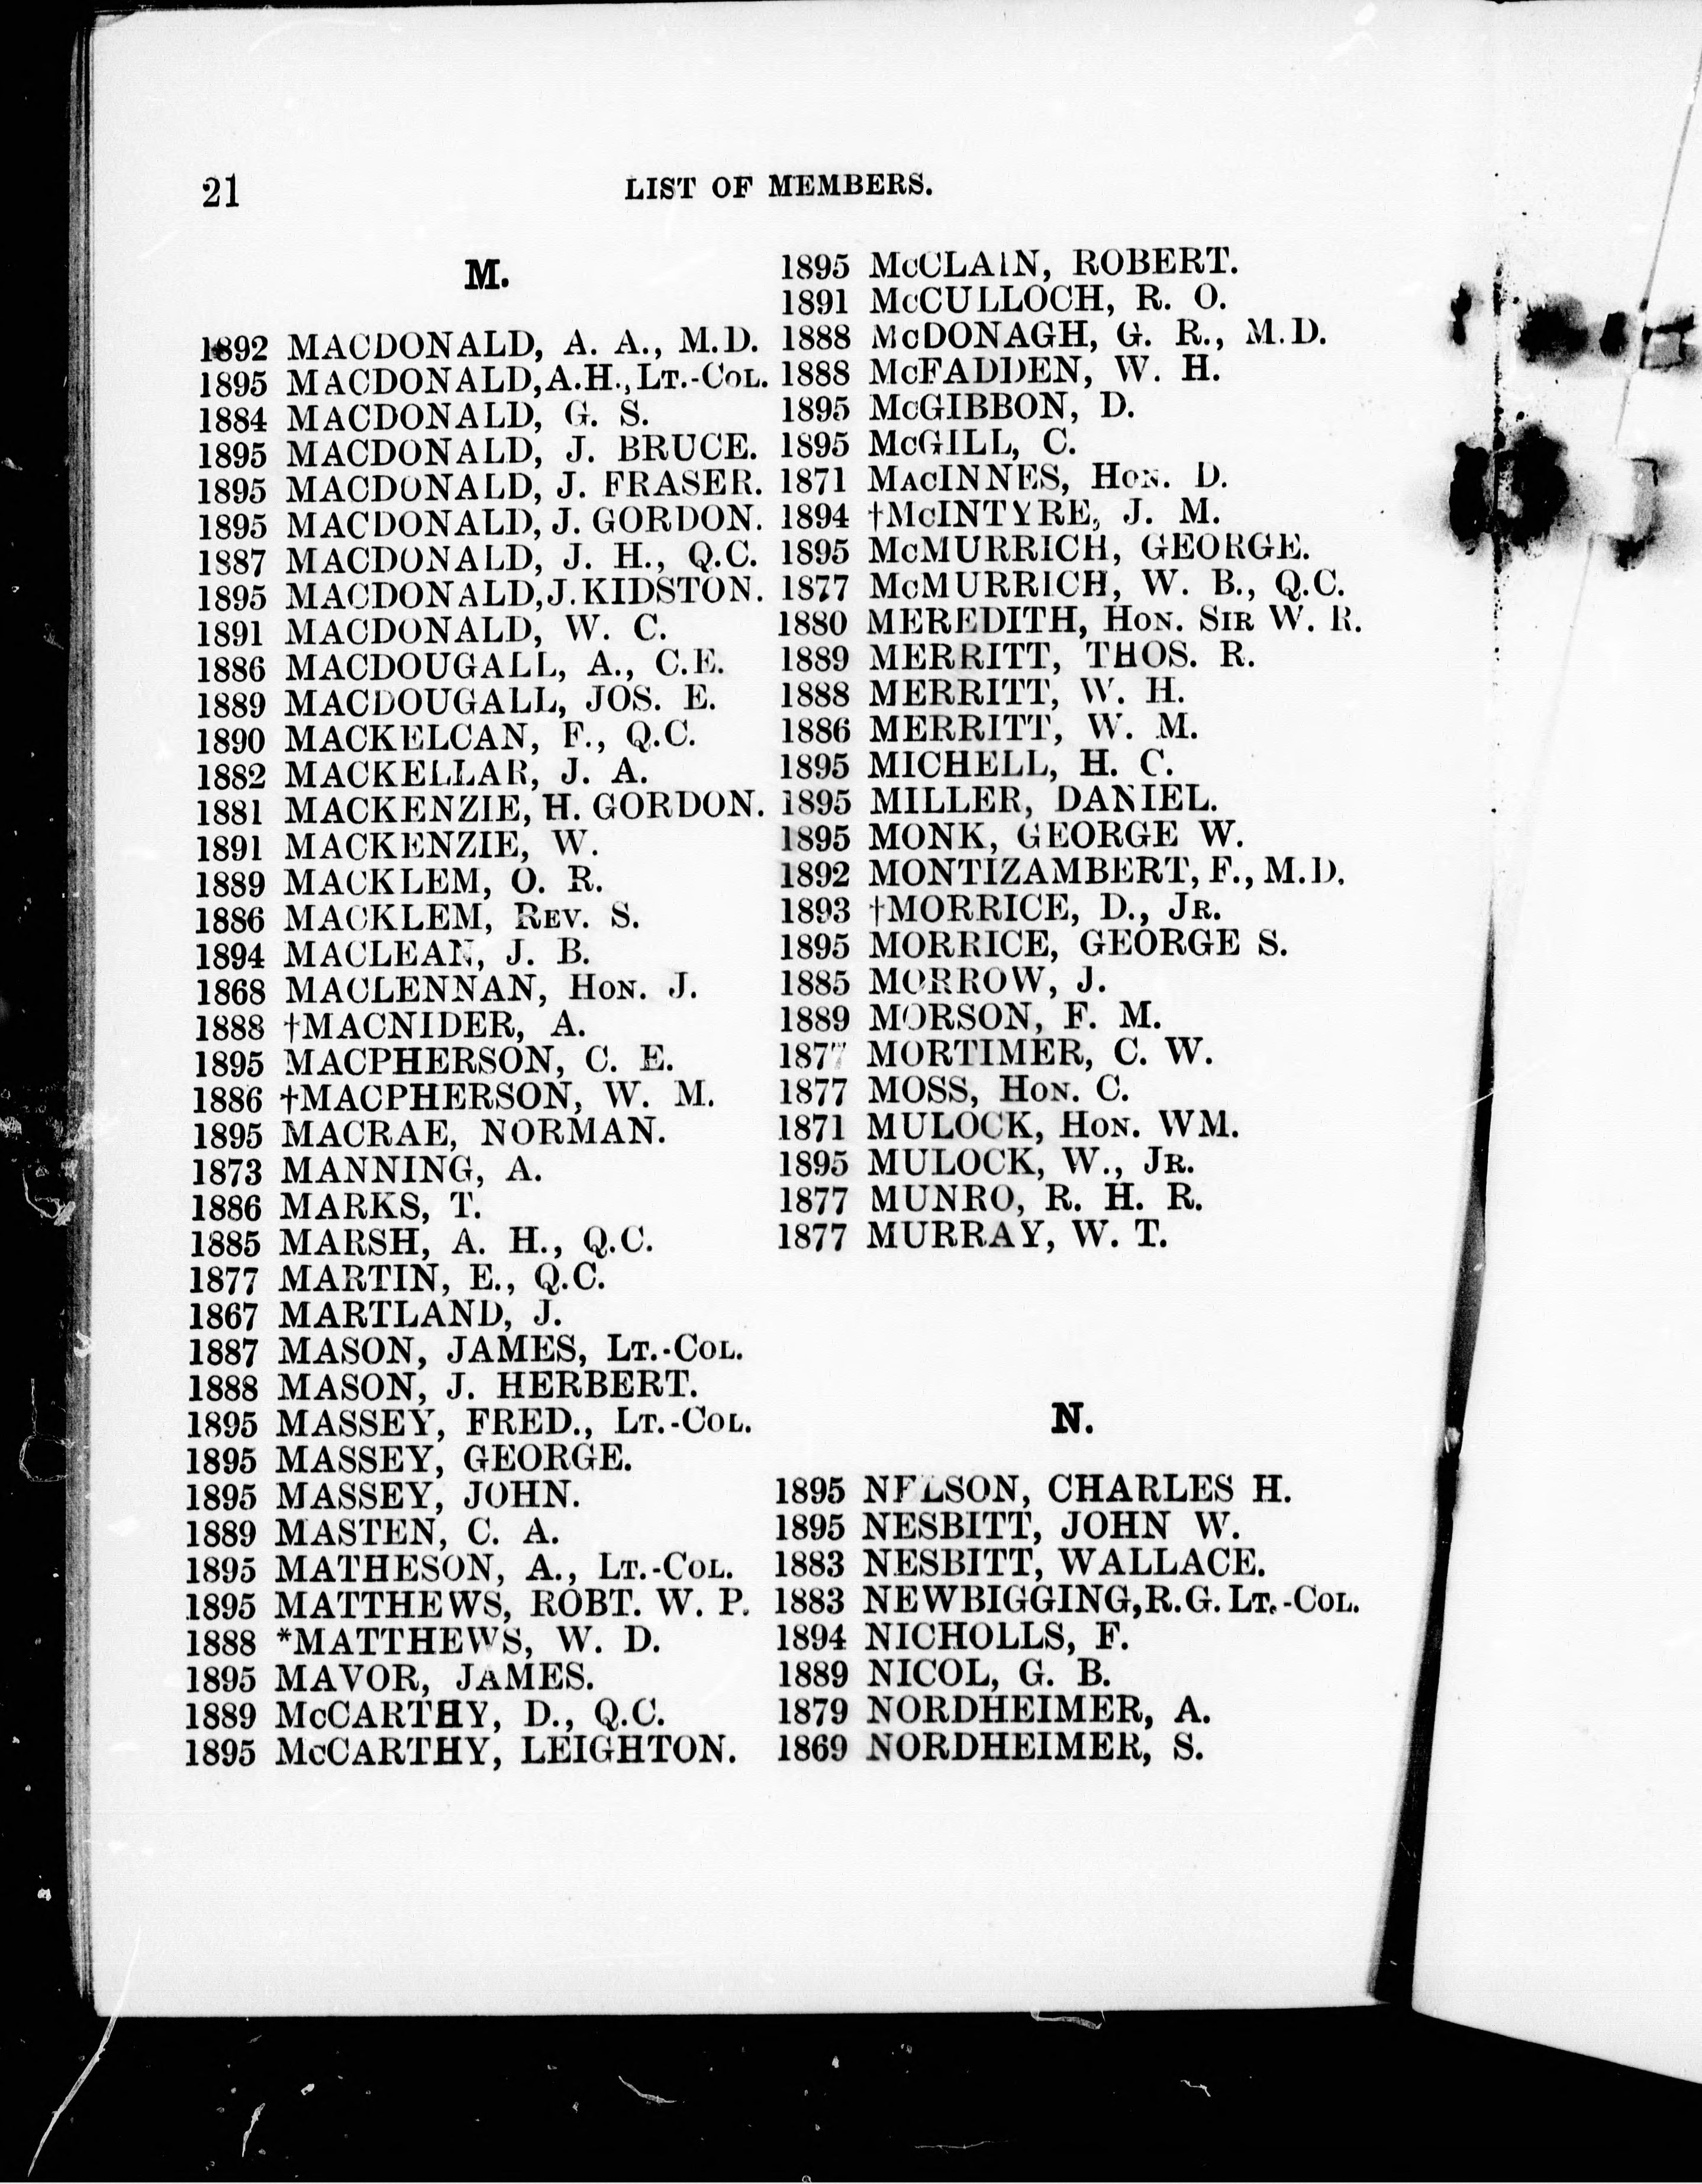 21
LIST OF MEMBERS.
M.
1892 MACDONALD, A. A., M.D.
1895 MACDONALD, A.H., LT.-COL.
1884 MACDONALD, G. S.
1895 MACDONALD, J. BRUCE.
1895 MACDONALD, J. FRASER.
1895 MACDONALD, J. GORDON.
1887 MACDONALD, J. H., Q.C.
1895 MACDONALD, J. KIDSTON.
1891 MACDONALD, W. C.
1886 MACDOUGALL, A., C.E.
1889 MACDOUGALL, JOS. E.
1890 MACKELCAN, F., Q.C.
1882 MACKELLAR, J. A.
1881 MACKENZIE, H. GORDON.
1891 MACKENZIE, W.
1889 MACKLEM, O. R.
1886 MACKLEM, REV. S.
1894 MACLEAN, J. B.
1868 MACLENNAN, HON. J.
1888 †MACNIDER, A.
1895 MACPHERSON, C. E.
1886 †MACPHERSON, W. M.
1895 MACRAE, NORMAN.
1873 MANNING, A.
1886 MARKS, T.
1885 MARSH, A. H., Q.C.
1877 MARTIN, E., Q.C.
1867 MARTLAND, J.
1887 MASON, JAMES, LT.-COL.
1888 MASON, J. HERBERT.
1895 MASSEY, FRED., LT.-COL.
1895 MASSEY, GEORGE.
1895 MASSEY, JOHN.
1889 MASTEN, C. A.
1895 MATHESON, A., LT.-COL.
1895 MATTHEWS, ROBT. W. P.
1888 *MATTHEWS, W. D.
1895 MAVOR, JAMES.
1889 McCARTHY, D., Q.C.
1895 McCARTHY, LEIGHTON.
1895 McCLAIN, ROBERT.
1891 McCULLOCH, R. O.
1888 McDONAGH, G. R., M.D.
1888 McFADDEN, W. H.
1895 McGIBBON, D.
1895 McGILL, C.
1871 MACINNES, HON. D.
1894 †McINTYRE, J. M.
1895 McMURRICH, GEORGE.
1877 McMURRICH, W. B., Q.C.
1880 MEREDITH, HON. SIR W. R.
1889 MERRITT, THOS. R.
1888 MERRITT, W. H.
1886 MERRITT, W. M.
1895 MICHELL, H. C.
1895 MILLER, DANIEL.
1895 MONK, GEORGE W.
1892 MONTIZAMBERT, F., M.D.
1893 †MORRICE, D., JR.
1895 MORRICE, GEORGE S.
1885 MORROW, J.
1889 MORSON, F. M.
1877 MORTIMER, C. W.
1877 MOSS, HON. C.
1871 MULOCK, HON. WM.
1895 MULOCK, W., JR.
1877 MUNRO, R. H. R.
1877 MURRAY, W. T.
N.
1895 NELSON, CHARLES H.
1895 NESBITT, JOHN W.
1883 NESBITT, WALLACE.
1883 NEWBIGGING, R. G. LT.-COL.
1894 NICHOLLS, F.
1889 NICOL, G. B.
1879 NORDHEIMER, A.
1869 NORDHEIMER, S.